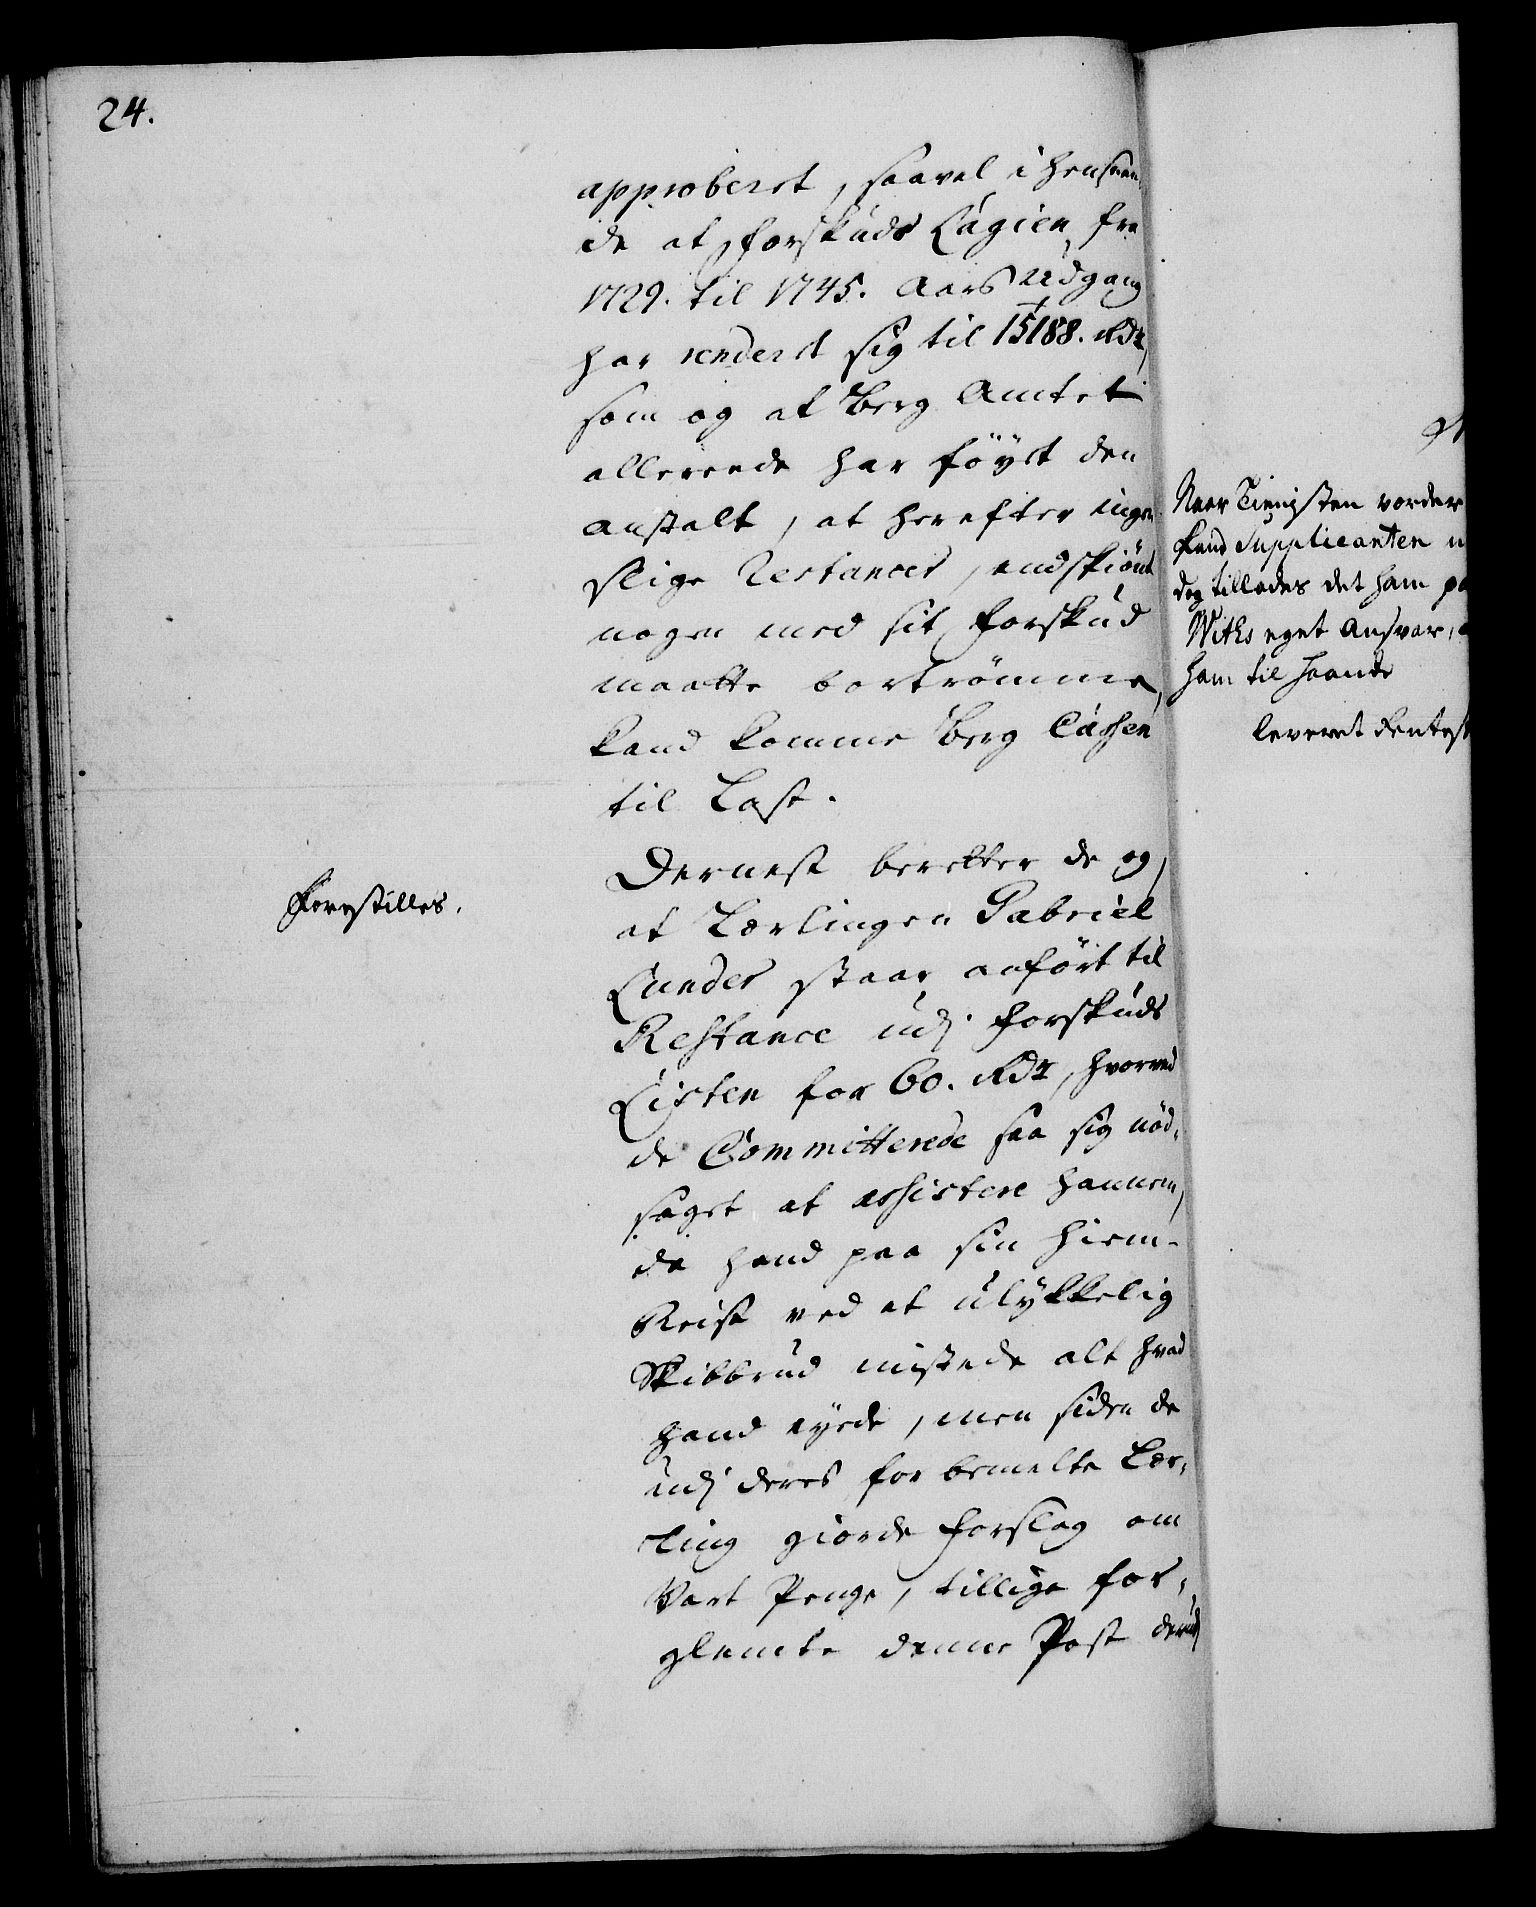 24.
approberet, saavel i henseen-
de at forskuds Lagien fra
1729. til 1745. Aars Udgang
har renderet sig til 15188. Rdr,
som og at Berg Amtet
allereede har föyet den
anstalt, at herefter ingen
slige Restancer, endskiönt
nogen med sit forskud
maatte bortrömme,
kand komme Berg Cassen
til Last.
Forestilles.
Dernest beretter de og,
at Lærlingen Gabriel
Lunder staar anfört til
Restance udj forskuds
Listen for 60. Rdr, hvorved
de Committerede saa sig nöd-
saget at assistere hannem,
da hand paa sin Hiem-
Reise ved et ulykkelig
Skibbrud mistede alt hvad
hand eyede, men siden de
udj deres for bemelte Lær-
ling giorde forslag om
Vart Penge, tillige for-
glemte denne Post derudj
Naar Tienisten vorder
kand Supplicanten
dog tillades det ham
Withs eget Ansvar,
ham til haande
leveret